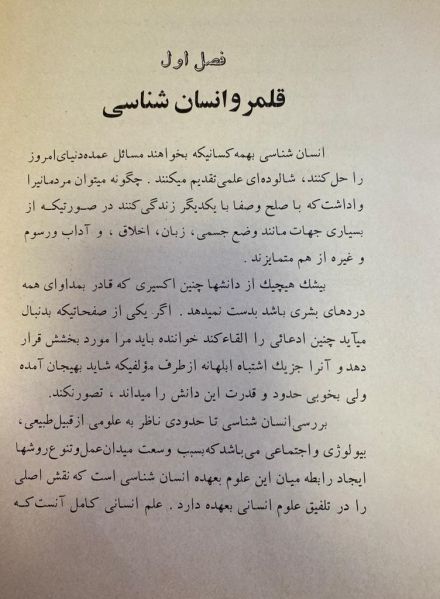 فصل اول
قلمرو انسان شناسی
انسان شناسی بهمه کسانیکه بخواهند مسائل عمده دنیای امروز
را حل کنند، شالوده‌ای علمی تقدیم میکنند . چگونه میتوان مردمانیرا
واداشت که با صلح وصفا با یکدیگر زندگی کنند در صورتیکه از
بسیاری جهات مانند وضع جسمی، زبان، اخلاق ، و آداب ورسوم
و غیره از هم متمایزند .
بیشك هیچیك از دانشها چنین اکسیری که قادر بمداوای همه
دردهای بشری باشد بدست نمیدهد . اگر یکی از صفحاتیکه بدنبال
میآید چنین ادعائی را القاء کند خواننده باید مرا مورد بخشش قرار
دهد و آنرا جزیك اشتباه ابلهانه ازطرف مؤلفیکه شاید بهیجان آمده
ولی بخوبی حدود و قدرت این دانش را میداند ، تصور نکند.
بررسی انسان شناسی تا حدودی ناظر به علومی ازقبیل طبیعی،
بیولوژی و اجتماعی می‌باشد که بسبب وسعت میدان عمل و تنوع روشها
ایجاد رابطه میان این علوم بعهده انسان شناسی است که نقش اصلی
را در تلفیق علوم انسانی بعهده دارد . علم انسانی کامل آنست که